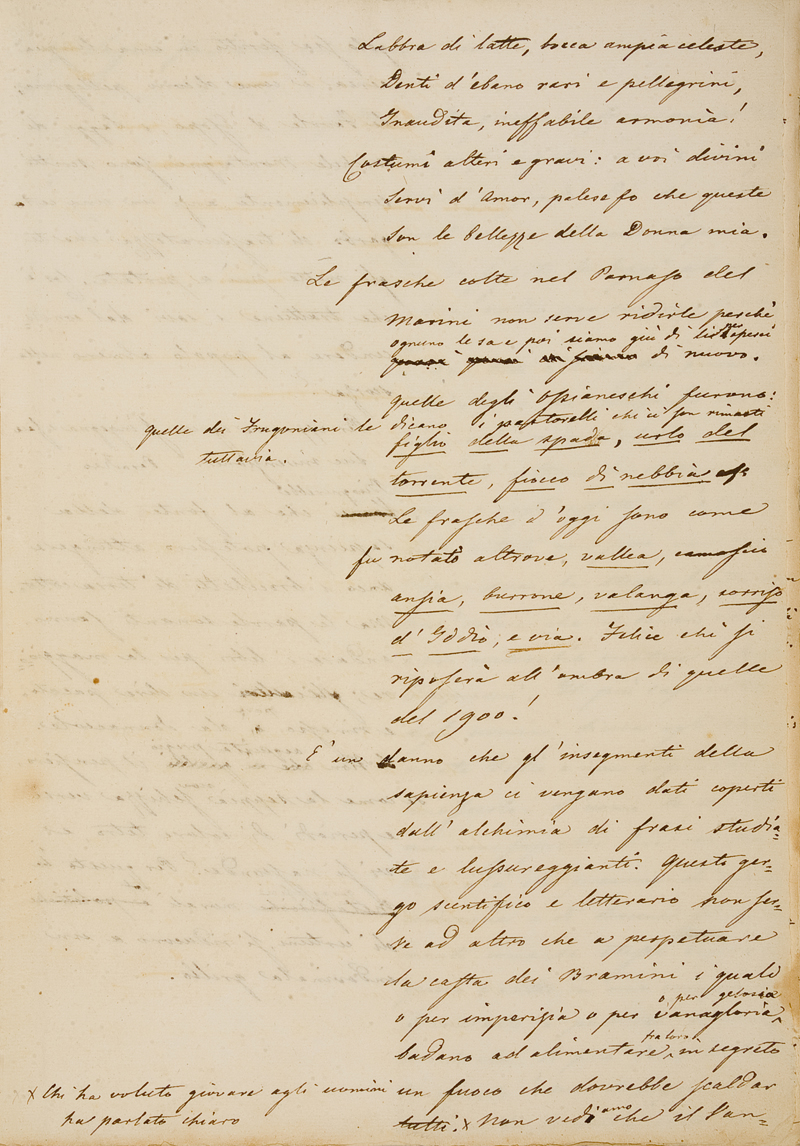 Labbra di latte, bocca ampia celeste,
Denti d'ebano rari e pellegrini,
Inaudita, ineffabile armonia!
Costumi alteri e gravi: a voi divini
Servi d'Amor, palese fo che queste
Son le bellezze della Donna mia.
Le frasche colte nel Parnaso del
Marini non serve ridirle perchè
ognuno le sa e poi siamo giù di lì
di nuovo.
quelle degli Ossianeschi furono:
quelle dei Frugoniani le dicano i pastorelli che ci son rimasti
tuttavia.
figlio della spada, urlo del
torrente, fiocco di nebbia
Le frasche d'oggi sono come
fu notato altrove, vallea, camoscio
ansia, burrone, valanga, sorriso
d'Iddio, e via. Felice chi si
riposerà all'ombra di quelle
del 1900!
E' un danno che gl'insegmenti della
sapienza ci vengano dati coperti
dall'alchimia di frasi studia-
te e lussureggianti. Questo ger-
go scentifico e letterario non ser-
ve ad altro che a perpetuare
la casta dei Bramini i quali
o per gelosia
o per imperizia o per vanagloria,
fra loro
badano ad alimentare in segreto
un fuoco che dovrebbe scaldar
x Chi ha voluto giovare agli uomini
ha parlato chiaro
tutti. x Non vediamo che il Van-